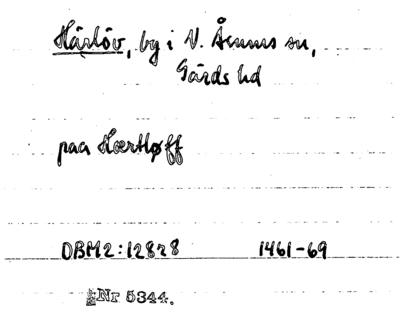 Härlöv, by i V. Åsums sn,
Gärds hd
paa Hærtløff
DBM2:12828 1461-69
Nr 5344.